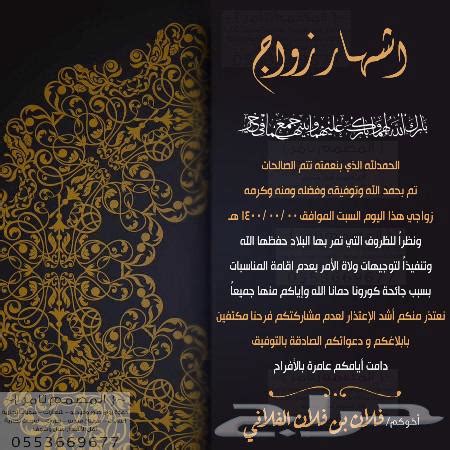 اشهار زواج
بارك الله لهما وبارك عليهما وجمع بينهما في خير
الحمدلله الذي بنعمته تتم الصالحات
تم بحمد الله وتوفيقه وفضله ومنه وكرمه
زواجي هذا اليوم السبت الموافق ١٤٠٠/٠٠/٠٠ هـ
ونظراً للظروف التي تمر بها البلاد حفظها الله
وتنفيذاً لتوجيهات ولاة الأمر بعدم اقامة المناسبات
بسبب جائحة كورونا حمانا الله وإياكم منها جميعاً
نعتذر منكم أشد الإعتذار لعدم مشاركتكم فرحنا مكتفين
بابلاغكم و دعواتكم الصادقة بالتوفيق
دامت أيامكم عامرة بالأفراح
أخوكم/ فلان بن فلان الفلاني
المصمم تامر
0553669677
حراج